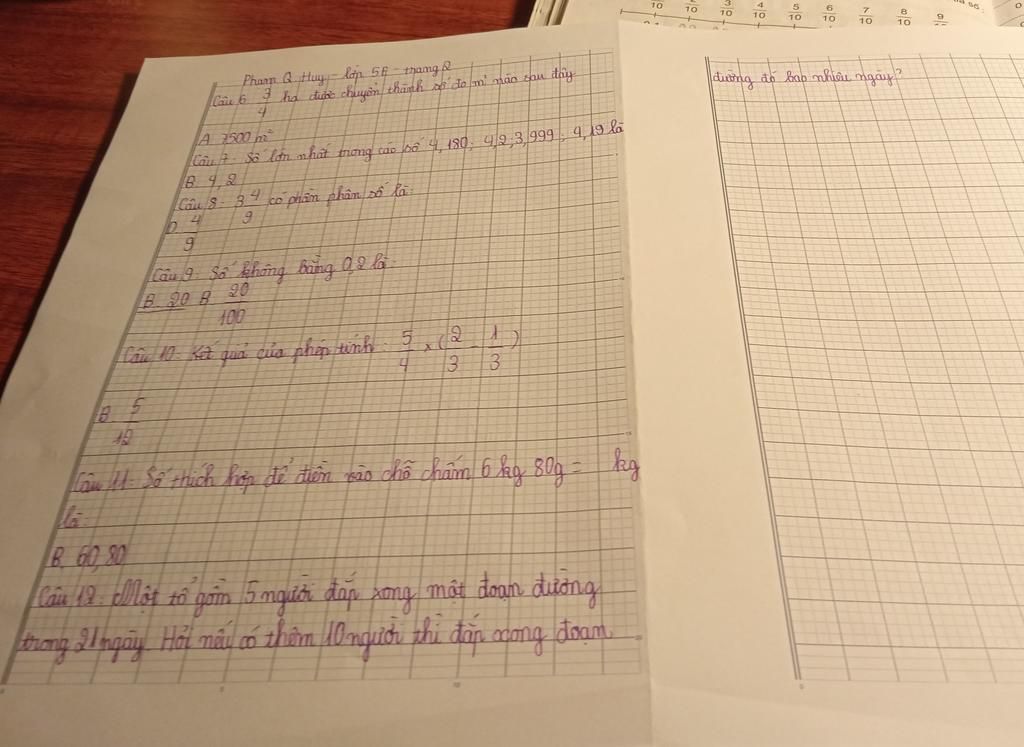 Phạm Q. Huy - lớp 5A - trang 2
Câu 6: 3/4 ha được chuyển thành số đo m² nào sau đây
A. 7500 m²
Câu 7. Số lớn nhất trong các số 4,180; 4,2; 3,999; 4,19 là
B. 4,2
Câu 8. 3 4/9 có phần phân số là:
D. 4/9
Câu 9: Số không bằng 0,2 là:
B. 20 B. 20/100
Câu 10: Kết quả của phép tính: 5/4 × (2/3 - 1/3)
B. 5/12
Câu 11: Số thích hợp để điền vào chỗ chấm 6 kg 80g = kg
là:
B. 60,80
Câu 12: Một tổ gồm 5 người đắp xong một đoạn đường
trong 21 ngày. Hỏi nếu có thêm 10 người thì đắp xong đoạn
đường đó bao nhiêu ngày?
10 2/10 3/10 4/10 5/10 6/10 7/10 8/10 9/10